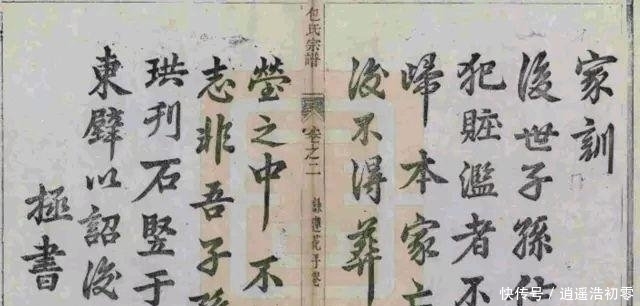 家訓
後世子孫仕
犯賍濫者不
歸本家亡
後不得葬
包氏宗譜
卷之二
塋之中不
志非吾子孫
珙刊石竪于
東壁以詔後
拯書
快传号/逍遥浩初零